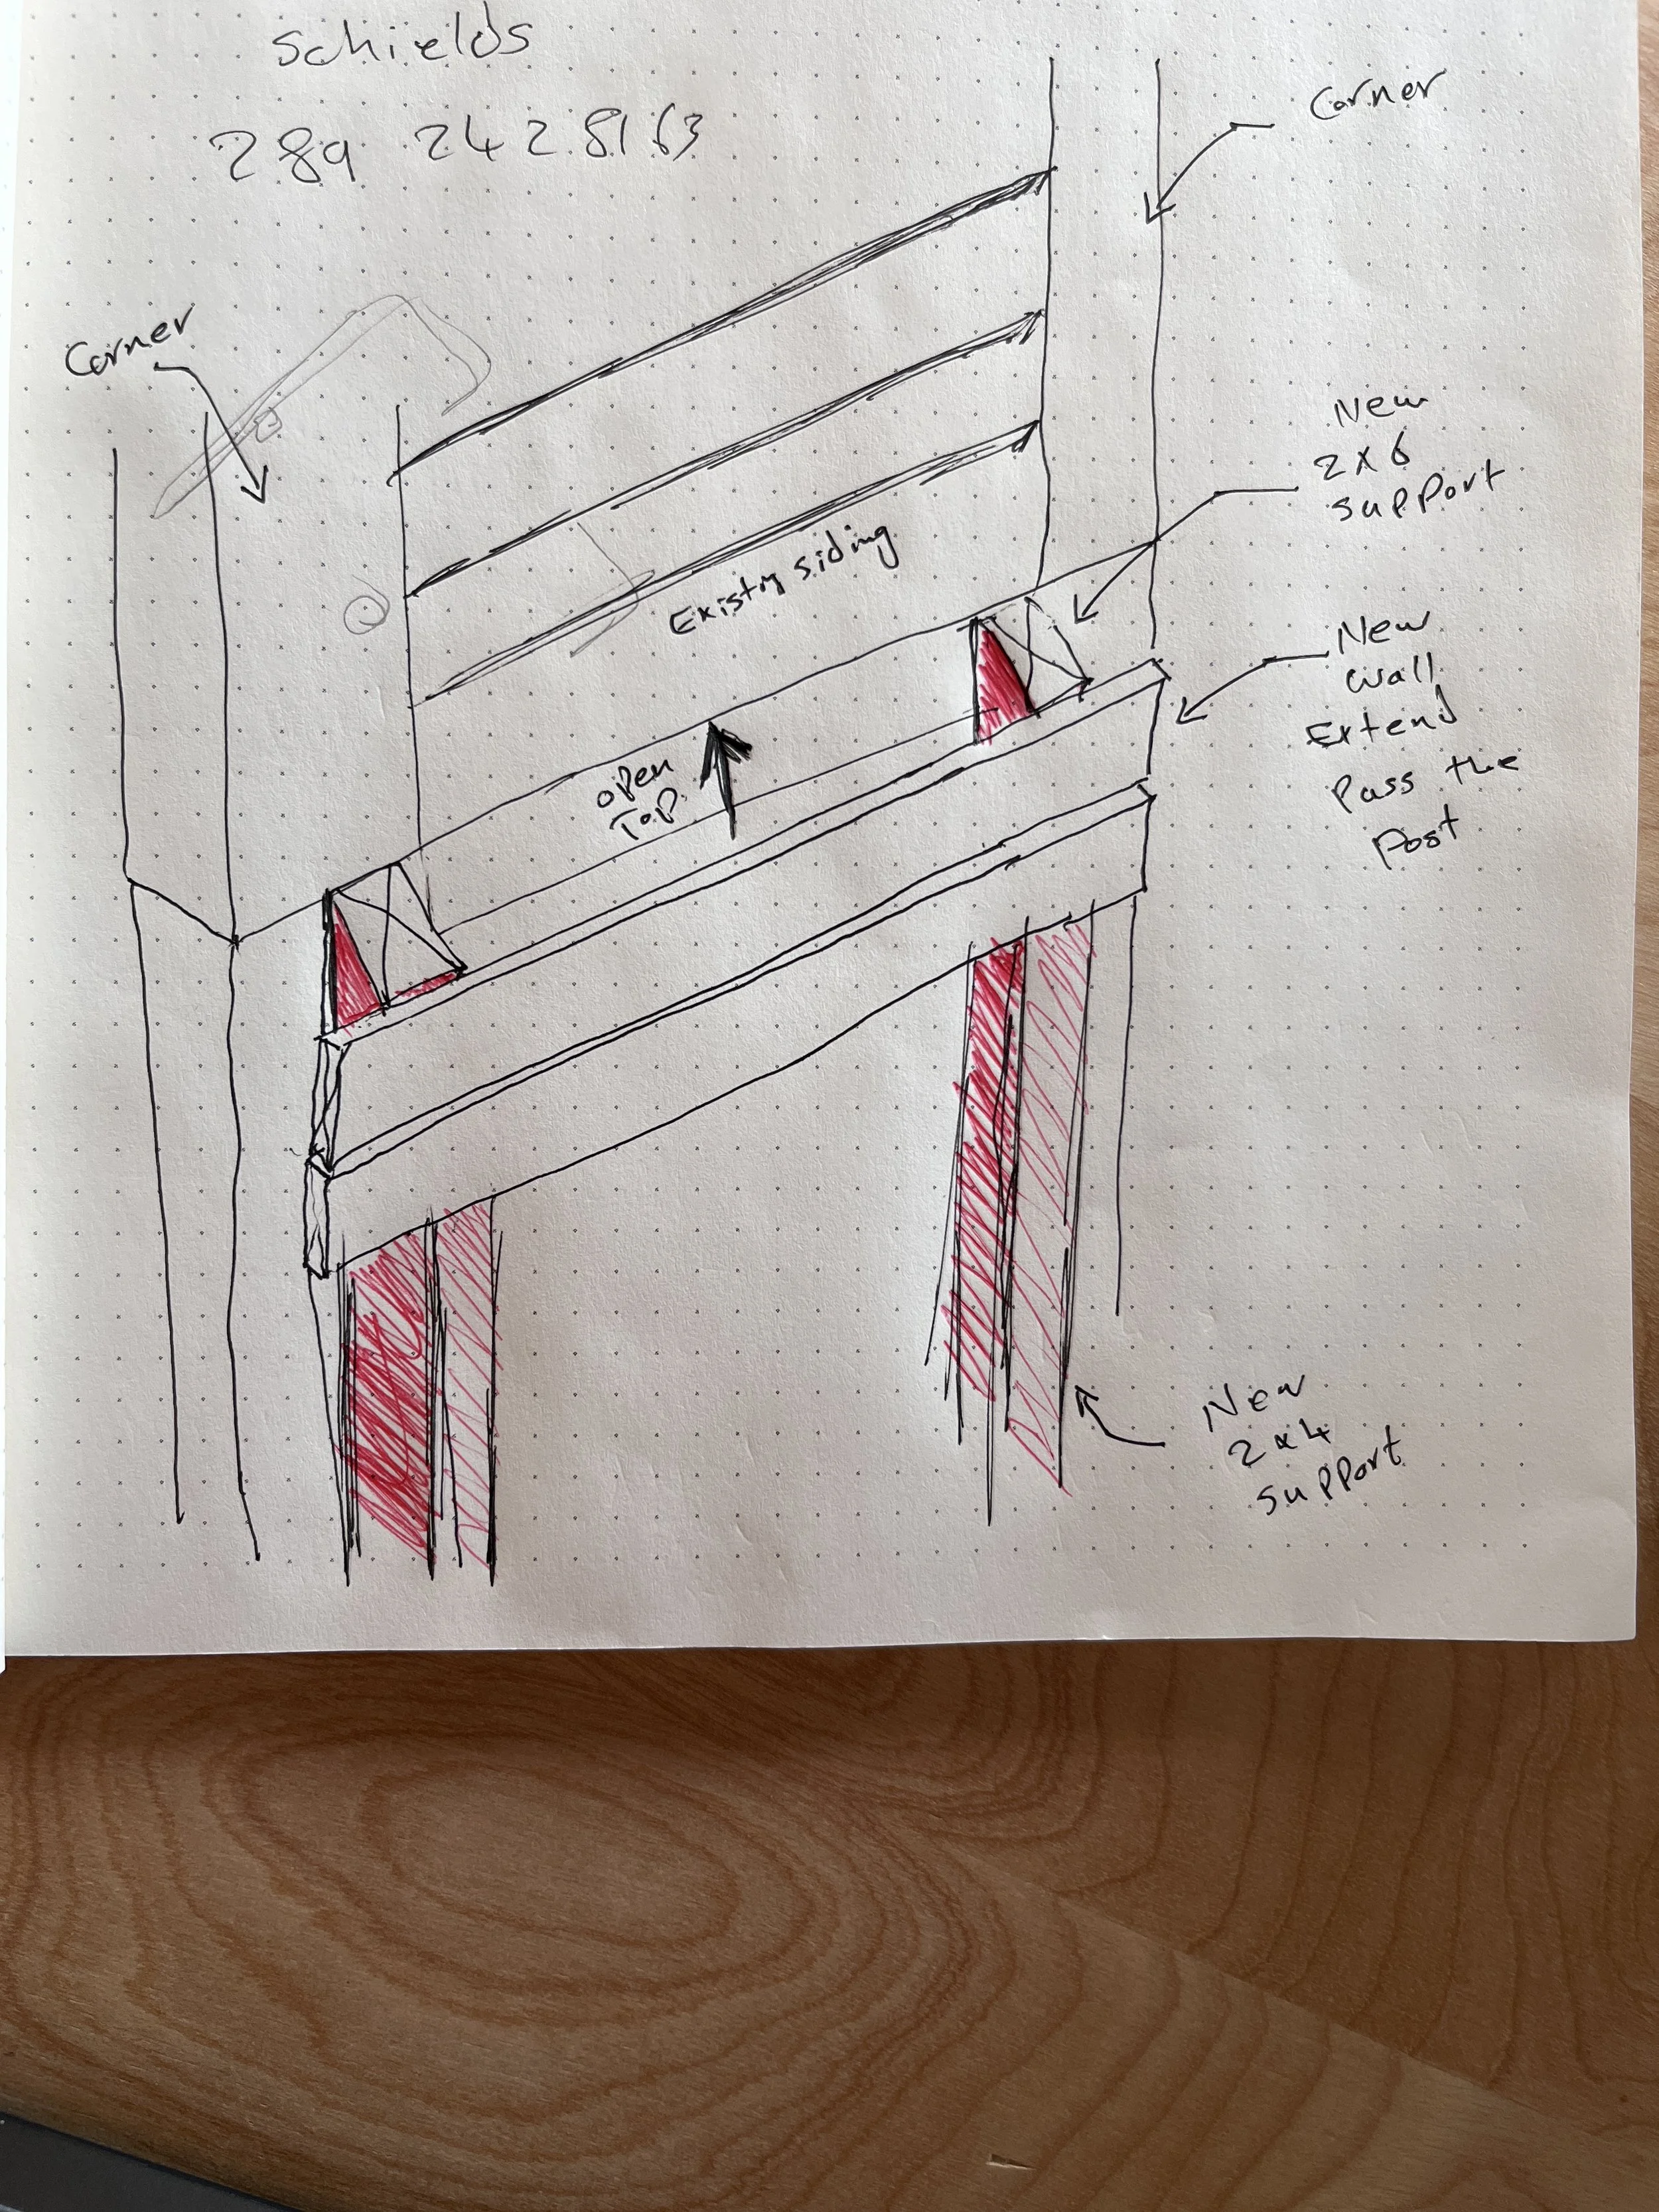 schields
289 242 8163
Corner
Corner
New
2x6
support
Existing siding
New
wall
Extend
Pass the
Post
open
Top
New
2x4
support